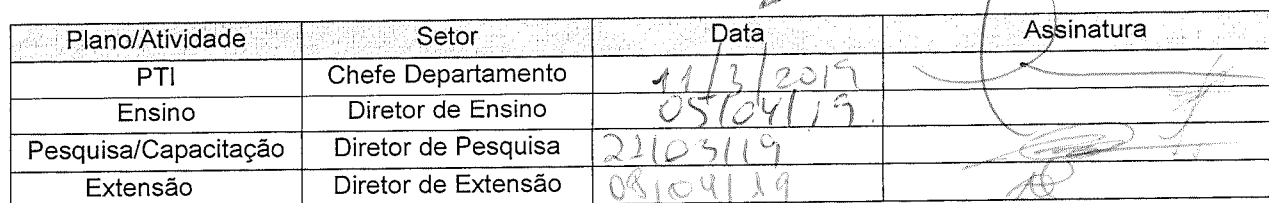 Plano/Atividade Setor Data Assinatura
PTI Chefe Departamento 11/3/2019
Ensino Diretor de Ensino 05/04/19.
Pesquisa/Capacitação Diretor de Pesquisa
Extensão Diretor de Extensão 08/04/19